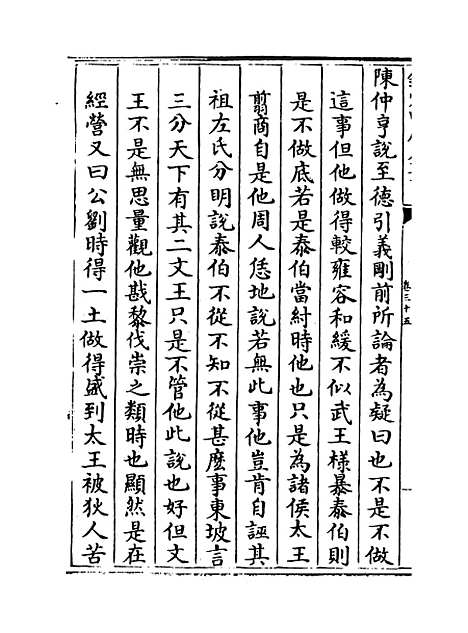 陳仲亨說至德引義剛前所論者為疑曰也不是不做
這事但他做得較雍容和緩不似武王樣暴泰伯則
是不做底若是泰伯當紂時他也只是為諸侯太王
翦商自是他周人恁地說若無此事他豈肯自誣其
祖左氏分明說泰伯不從不知不從甚麽事東坡言
三分天下有其二文王只是不管他此說也好但文
王不是無思量觀他戡黎伐崇之類時也顯然是在
經營又曰公劉時得一土做得盛到太王被狄人苦
卷三十五